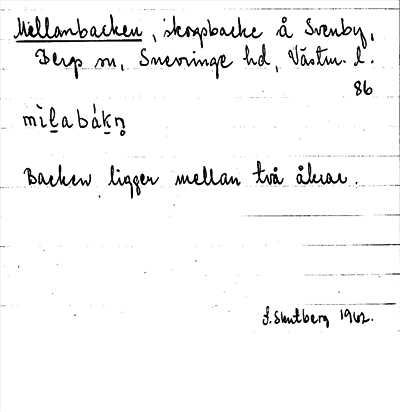 Mellanbacken, skogsbacke å Svenby,
Bergs sn, Snevringe hd, Västm. l.
86
mìḻabáḵn̥
Backen ligger mellan två åkrar.
1962.